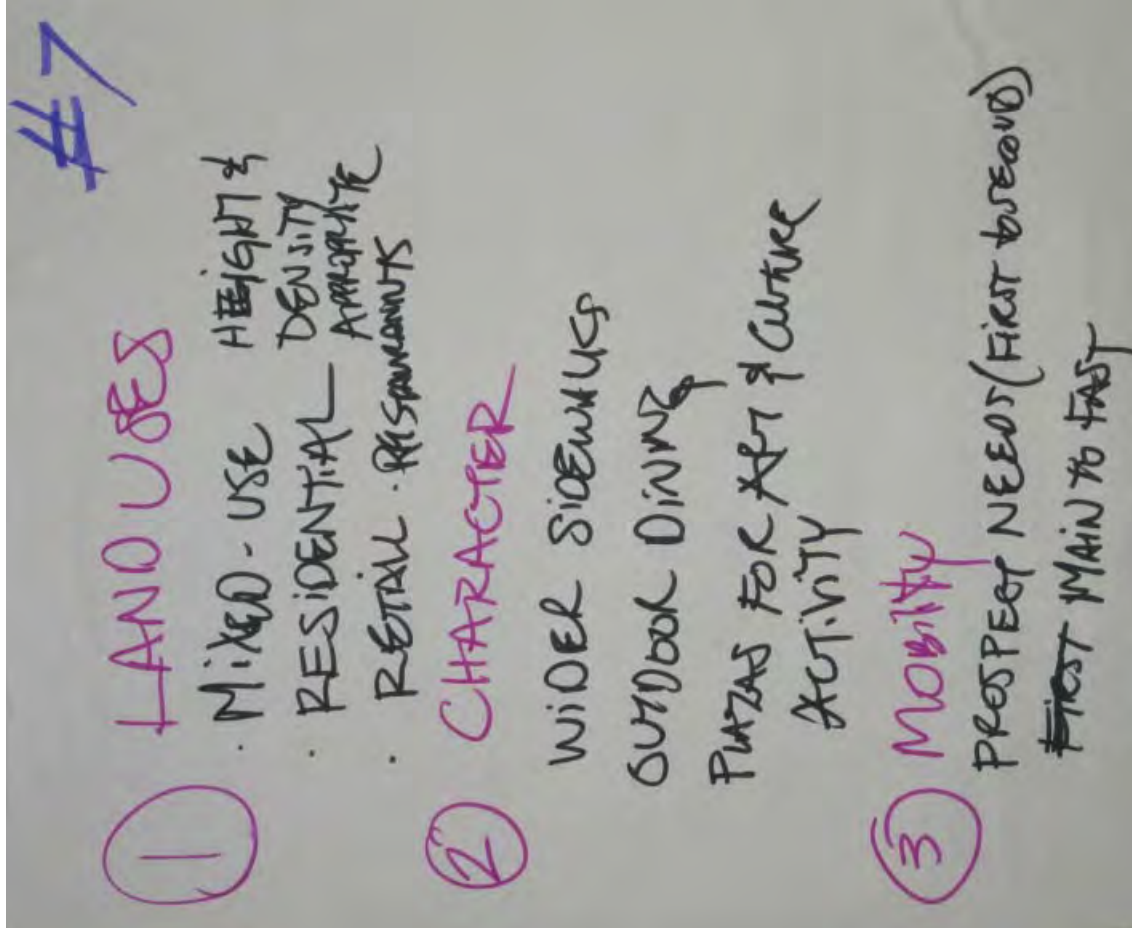 #7
① LAND USES
· MIXED-USE HEIGHT &
· RESIDENTIAL DENSITY
APPROPRIATE
· RETAIL · RESTAURANTS
② CHARACTER
WIDER SIDEWALKS
OUTDOOR DINING
PLAZAS FOR ART & CULTURE
ACTIVITY
③ MOBILITY
PROSPECT NEEDS (FIRST SECOND)
MAIN TO FAST